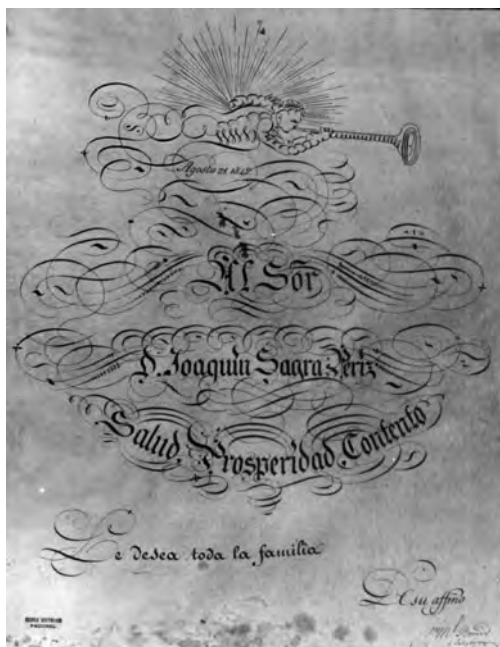 Agosto 21
Al Sõr
D. Joaquin Sagra Periz
Salud, Prosperidad, Contento
Le desea toda la familia
De su affmo